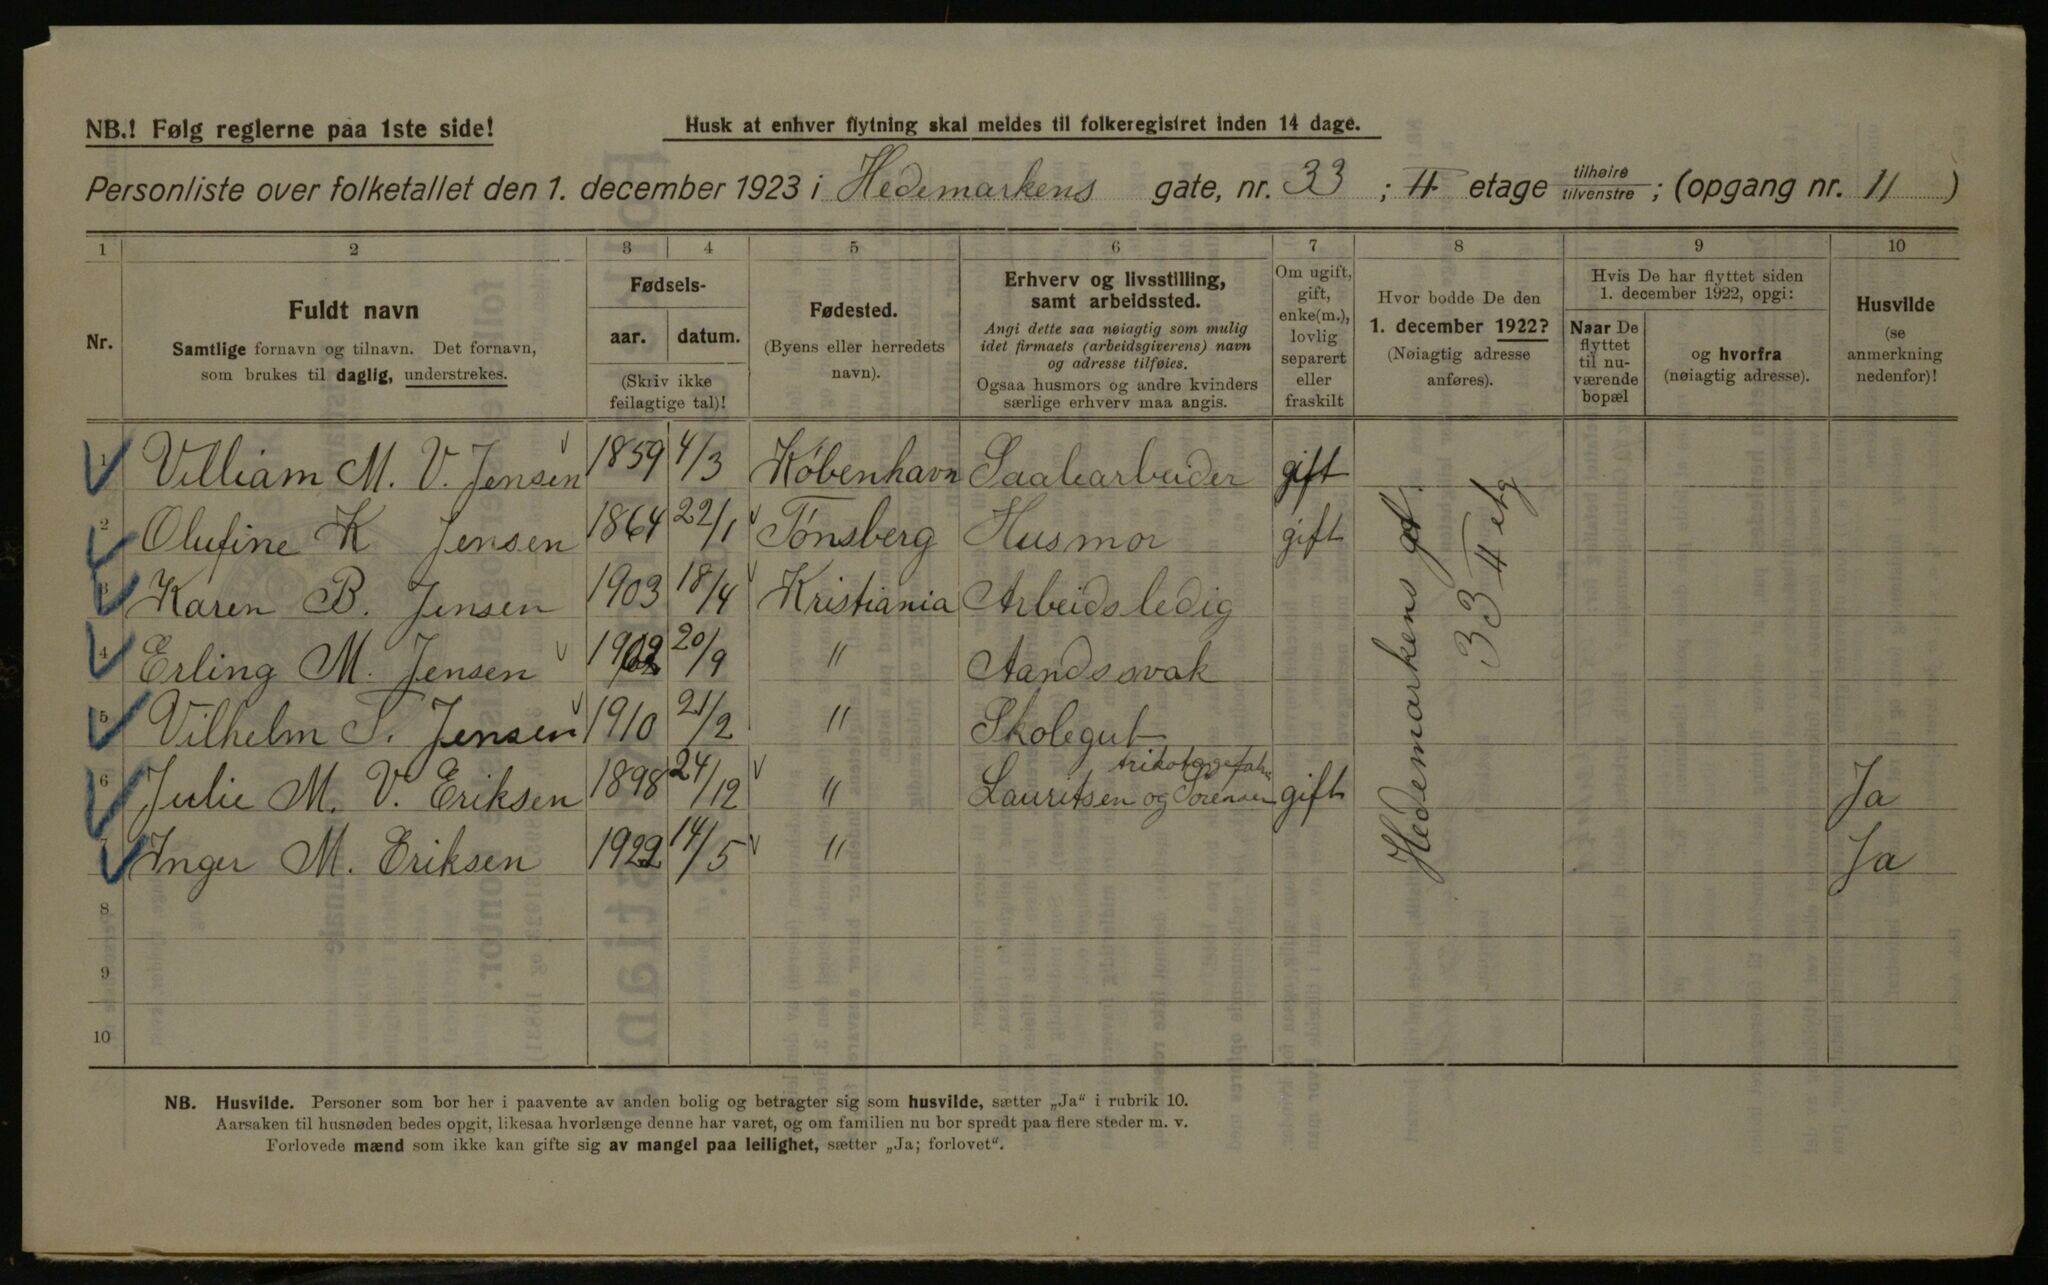 NB.! Følg reglerne paa 1ste side!
Husk at enhver flytning skal meldes til folkeregistret inden 14 dage.
Personliste over folketallet den 1. december 1923 i Hedemarkens gate, nr. 33 ; II etage tilhøire/tilvenstre ; (opgang nr. 11 )
1 2 3 4 5 6 7 8 9 10
Nr.
Fuldt navn
Samtlige fornavn og tilnavn. Det fornavn,
som brukes til daglig, understrekes.
Fødsels-
aar. datum.
(Skriv ikke
feilagtige tal)!
Fødested.
(Byens eller herredets
navn).
Erhverv og livsstilling,
samt arbeidssted.
Angi dette saa nøiagtig som mulig
idet firmaets (arbeidsgiverens) navn
og adresse tilføies.
Ogsaa husmors og andre kvinders
særlige erhverv maa angis.
Om ugift,
gift,
enke(m.),
lovlig
separert
eller
fraskilt
Hvor bodde De den
1. december 1922?
(Nøiagtig adresse
anføres).
Hvis De har flyttet siden
1. december 1922, opgi:
Naar De
flyttet
til nu-
værende
bopæl
og hvorfra
(nøiagtig adresse).
Husvilde
(se
anmerkning
nedenfor)!
1 Villiam M. V. Jensen 1859 4/3 København Saalearbeider gift
2 Olufine K Jensen 1864 22/1 Tønsberg Husmor gift
3 Karen B. Jensen 1903 18/4 Kristiania Arbeidsledig
4 Erling M. Jensen 1902 20/9 " Aandssvak
5 Vilhelm T. Jensen 1910 21/2 " Skolegut
6 Julie M. V. Eriksen 1898 24/12 " Lauritsen og Sørensen gift Ja
7 Inger M. Eriksen 1922 14/5 " Ja
Hedemarkens gt.
33 II etg
8
9
10
NB. Husvilde. Personer som bor her i paavente av anden bolig og betragter sig som husvilde, sætter „Ja" i rubrik 10.
Aarsaken til husnøden bedes opgit, likesaa hvorlænge denne har varet, og om familien nu bor spredt paa flere steder m. v.
Forlovede mænd som ikke kan gifte sig av mangel paa leilighet, sætter „Ja; forlovet".